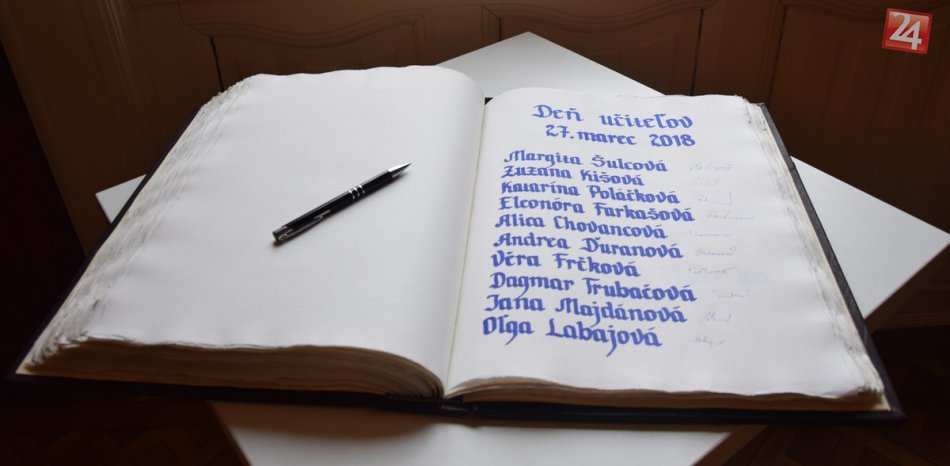 24
Deň učiteľov
27. marec 2018
Margita Šulcová
Zuzana Kišová
Katarína Poláčková
Eleonóra Farkašová
Alica Chovancová
Andrea Ďuranová
Věra Frčková
Dagmar Trubačová
Jana Majdánová
Oľga Labajová